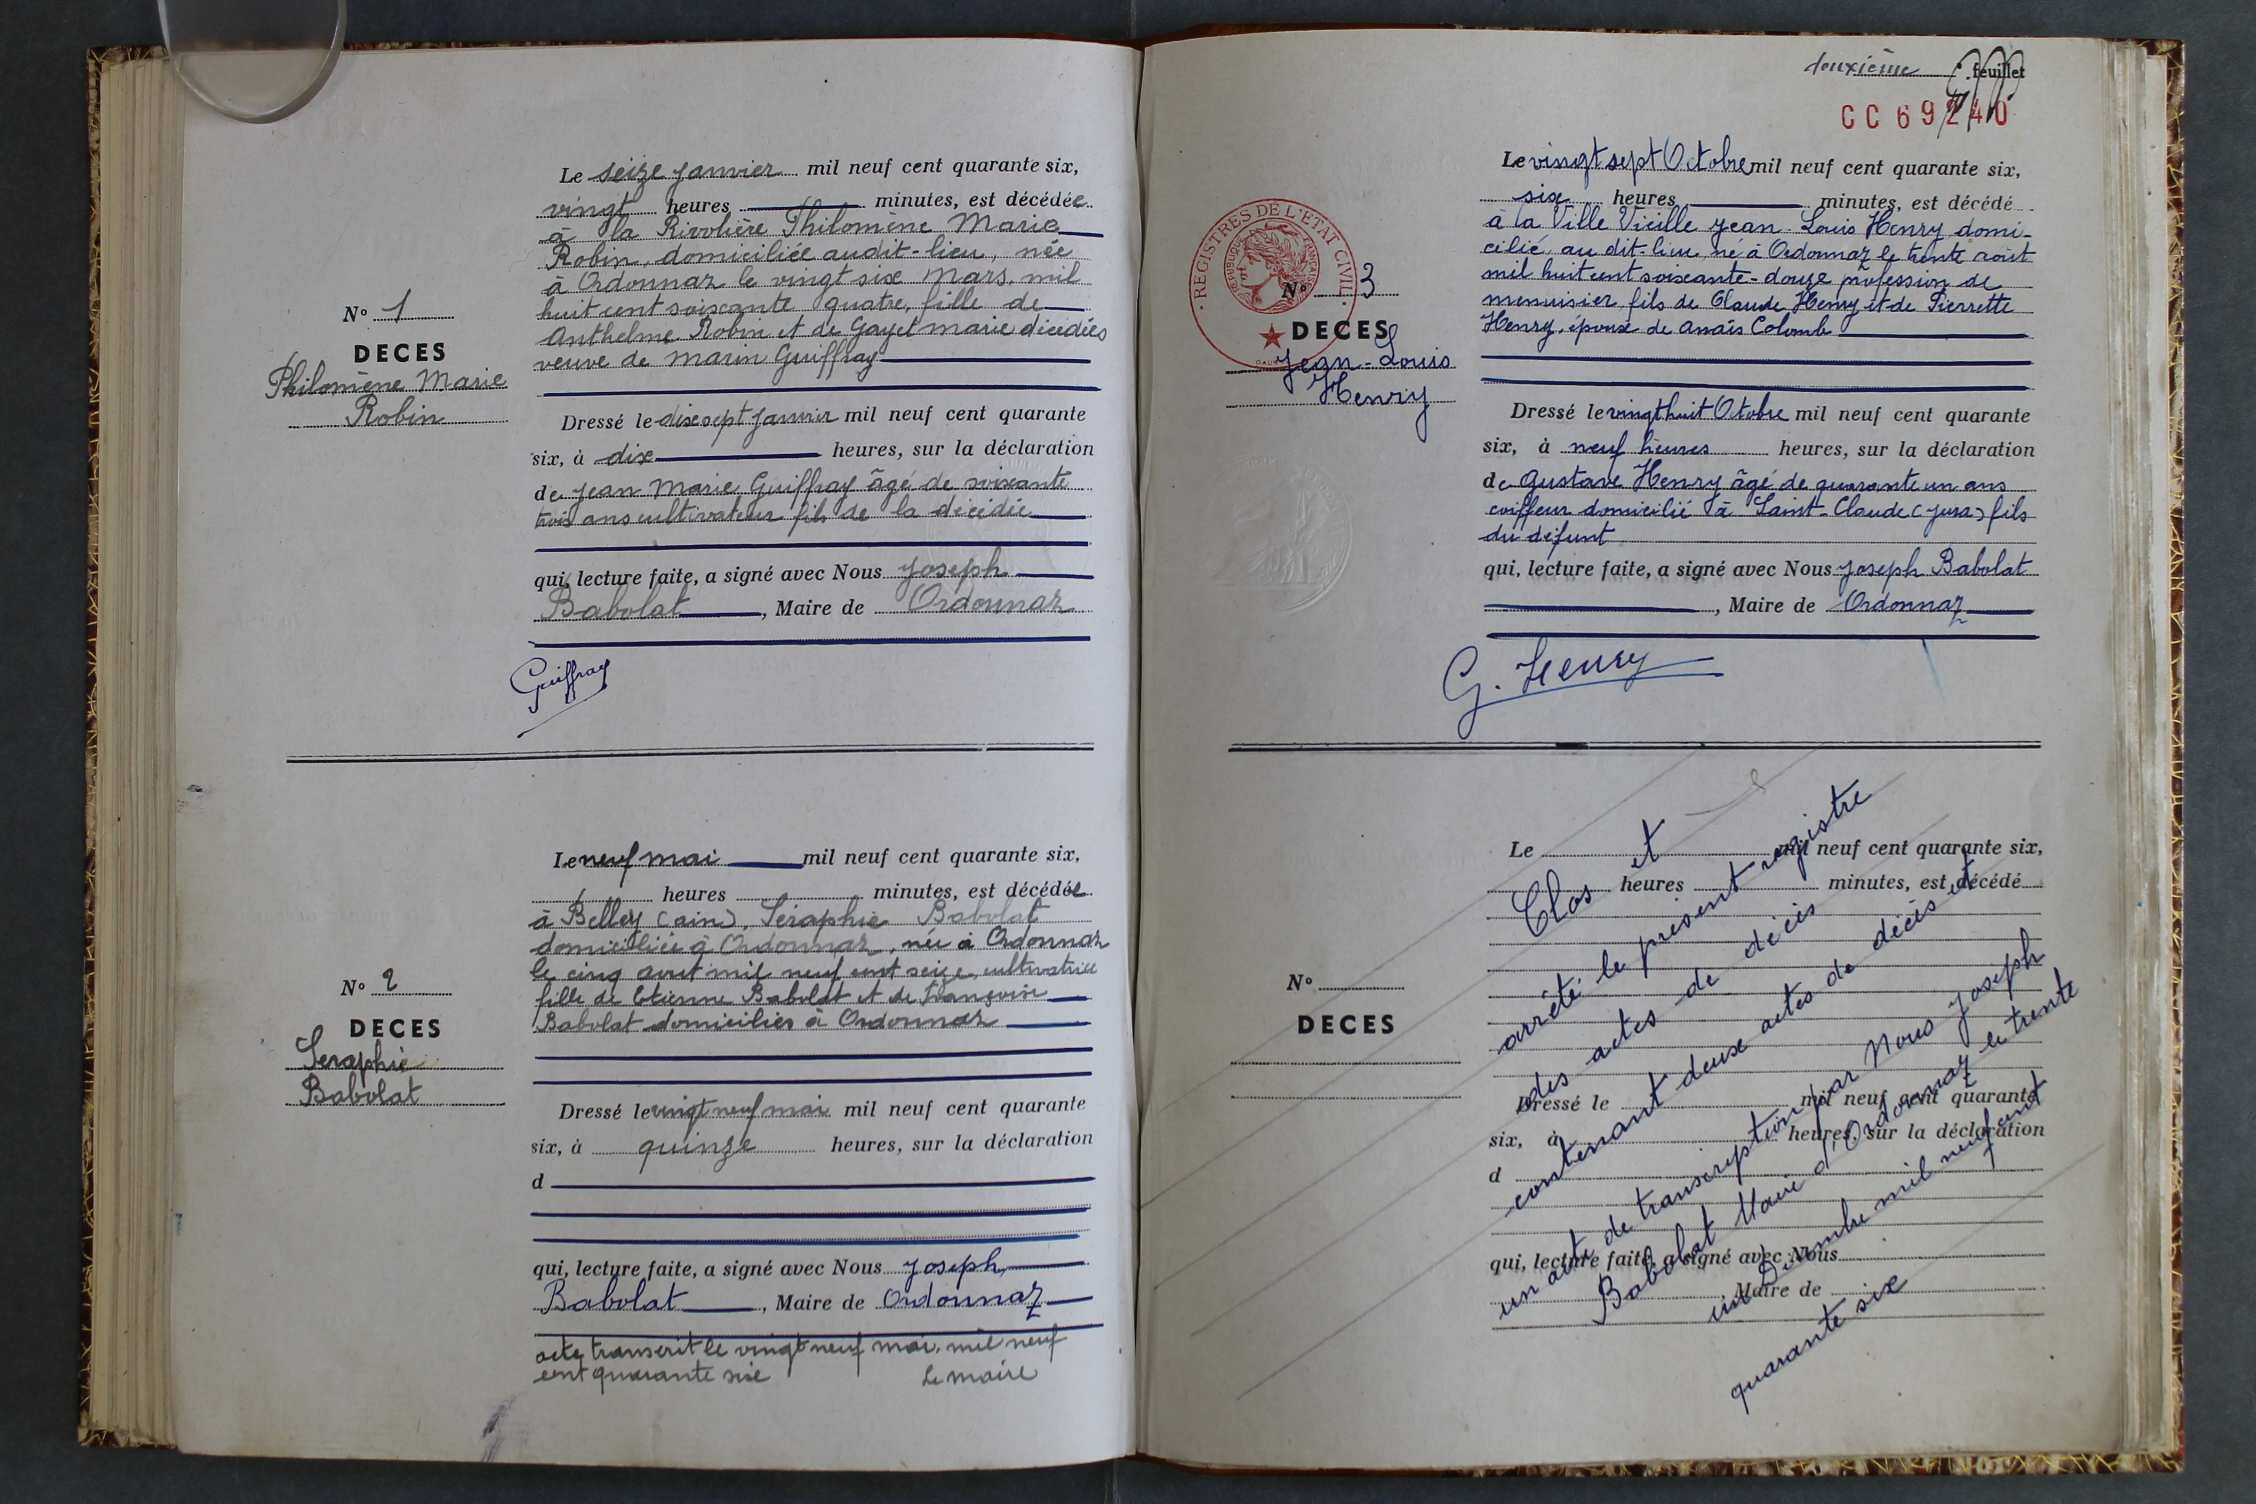 N° 1
DECES
Philomène Marie
Robin
Le seize janvier mil neuf cent quarante six,
vingt heures minutes, est décédée
à la Rivolière Philomène Marie
Robin, domiciliée audit-lieu, née
à Ordonnaz le vingt six Mars, mil
huit cent soixante quatre, fille de
Anthelme Robin et de Gayet marie décédés
veuve de marin Guiffray
Dressé le dix sept janvier mil neuf cent quarante
six, à dix heures, sur la déclaration
de jean Marie Guiffray âgé de soixante
trois ans cultivateur fils de la décédée
qui, lecture faite, a signé avec Nous joseph
Babolat, Maire de Ordonnaz
Guiffray
N° 2
DECES
Seraphie
Babolat
Le neuf mai mil neuf cent quarante six,
heures minutes, est décédée
à Belley (ain), Séraphie Babolat
domiciliée à Ordonnaz, née à Ordonnaz
le cinq aout mil neuf cent seize, cultivatrice
fille de Etienne Babolat et de Françoise
Babolat domiciliés à Ordonnaz
Dressé le vingt neuf mai mil neuf cent quarante
six, à quinze heures, sur la déclaration
d
qui, lecture faite, a signé avec Nous joseph
Babolat, Maire de Ordonnaz
acte transcrit le vingt neuf mai, mil neuf
cent quarante six le maire
deuxième feuillet
CC 69240
REGISTRES DE L'ETAT CIVIL
REPUBLIQUE FRANÇAISE
N° 3
DECES
Jean-Louis
Henry
Le vingt sept Octobre mil neuf cent quarante six,
six heures minutes, est décédé
à la Ville Vieille jean-Louis Henry domi-
cilié au dit-lieu né à Ordonnaz le trente août
mil huit cent soixante-douze profession de
menuisier, fils de Claude Henry et de Pierrette
Henry, époux de anaïs Colomb
Dressé le vingt huit Otobre mil neuf cent quarante
six, à neuf heures heures, sur la déclaration
de Gustave Henry âgé de quarante un ans
coiffeur domicilié à Saint-Claude (jura) fils
du défunt
qui, lecture faite, a signé avec Nous joseph Babolat
, Maire de Ordonnaz
G. Henry
N°
DECES
Le mil neuf cent quarante six,
heures minutes, est décédé
Dressé le mil neuf cent quarante
six, à heures, sur la déclaration
d
qui, lecture faite, a signé avec Nous
Maire de
Clos et
arrêté le présent registre
des actes de décès
contenant deux actes de décès et
un acte de transcription par Nous joseph
Babolat Maire d'Ordonnaz le trente
un Décembre mil neuf cent
quarante six